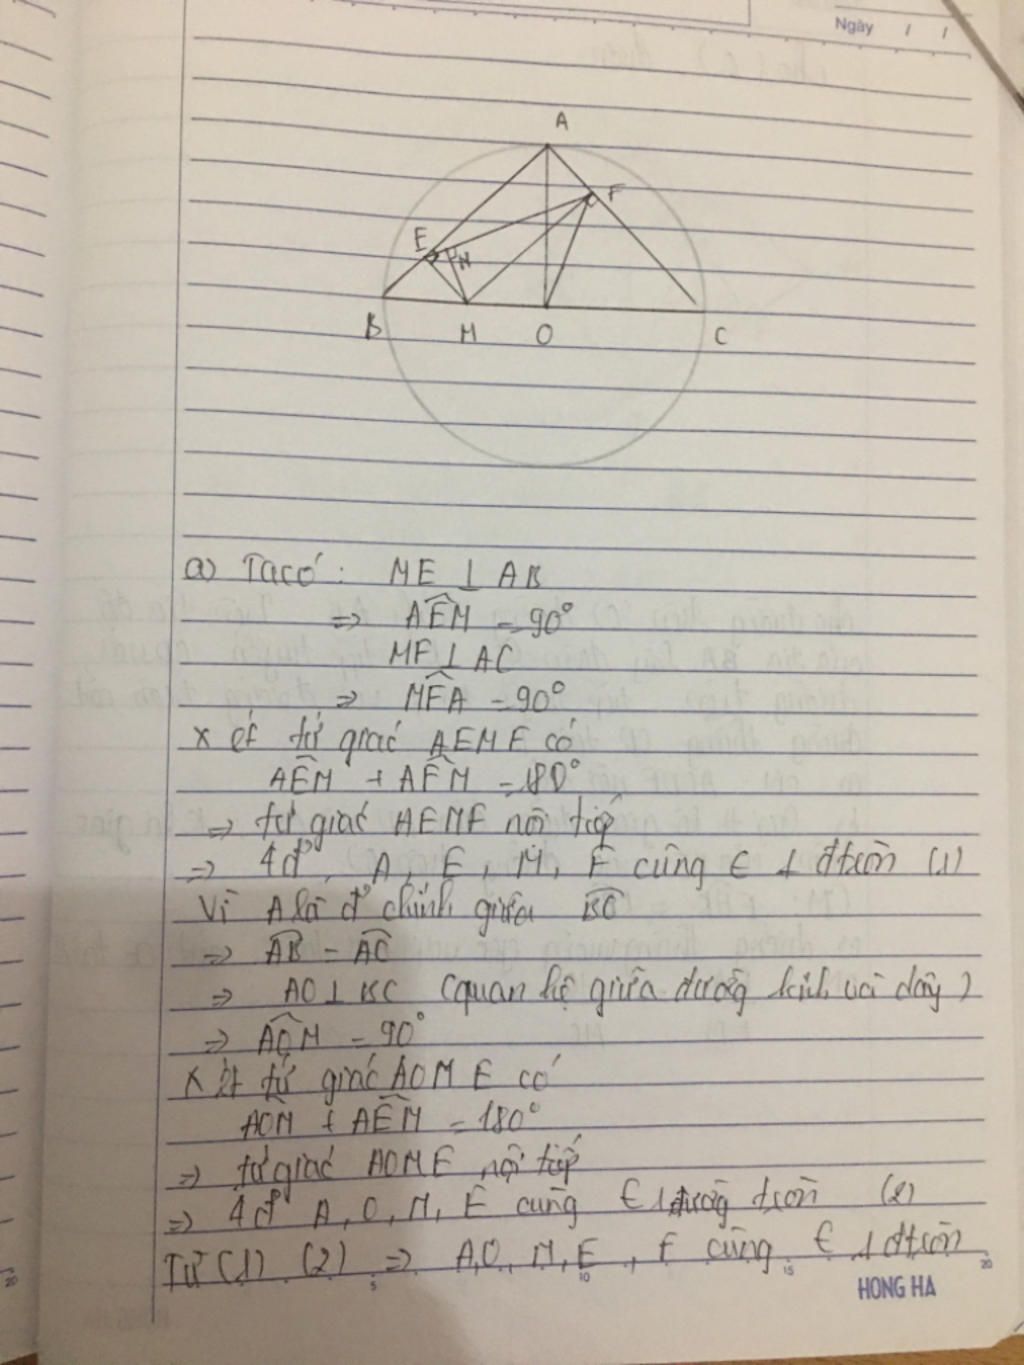 Ngày / /
A
F
E
N
B
M
O
C
a) Ta có : ME ⊥ AB
=> AÊM = 90°
MF ⊥ AC
=> MFA = 90°
Xét tứ giác AEMF có
AÊM + AFM = 180°
=> tứ giác AEMF nội tiếp
=> 4đ' A, E, M, F cùng ∈ 1 đtròn (1)
Vì A là đ' chính giữa BC
=> AB = AC
=> AO ⊥ BC (quan hệ giữa đường kính và dây)
=> AOM = 90°
Xét tứ giác AOME có
AOM + AÊM = 180°
=> tứ giác AOME nội tiếp
=> 4đ' A, O, M, E cùng ∈ 1 đường tròn (2)
Từ (1) (2) => A, O, M, E, F cùng ∈ 1 đtròn
5 10 15 20
HONG HA
20